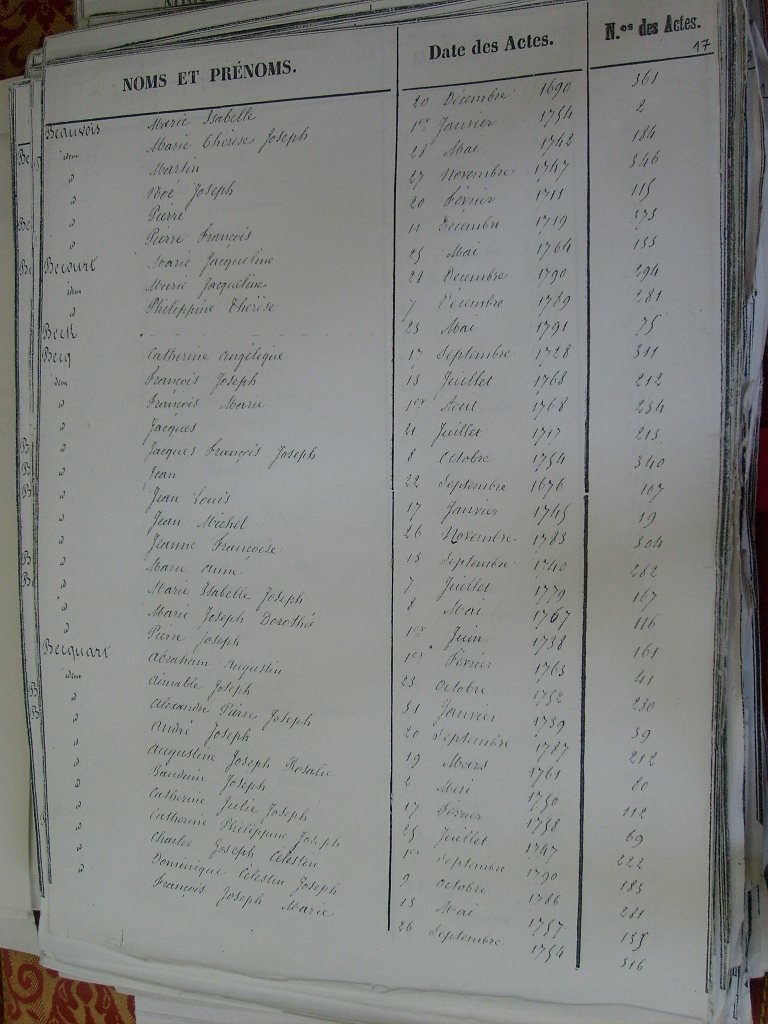 NOMS ET PRÉNOMS. Date des Actes. N.os des Actes.
17
Beauvois Marie Isabelle 20 Décembre 1690 361
idem Marie Thérèse Joseph 1er Janvier 1754 2
d Martin 28 Mai 1742 184
d Noé Joseph 27 Novembre 1747 346
d Pierre 20 Février 1711 115
d Pierre François 11 Décembre 1719 373
Becourt Marie Jacqueline 25 Mai 1764 153
idem Marie Jacqueline 28 Décembre 1790 294
d Philippine Thérèse 7 Décembre 1789 281
Beck 23 Mai 1791 75
Becq Catherine Angélique 17 Septembre 1728 311
idem François Joseph 13 Juillet 1768 212
d François Marie 1er Aout 1768 234
d Jacques 21 Juillet 1717 213
d Jacques François Joseph 8 Octobre 1754 340
d Jean 22 Septembre 1676 107
d Jean Louis 17 Janvier 1745 19
d Jean Michel 26 Novembre 1783 304
d Jeanne Françoise 13 Septembre 1740 262
d Marie Anne 7 Juillet 1779 167
d Marie Isabelle Joseph 8 Mai 1767 116
d Marie Joseph Dorothée 1er Juin 1738 161
d Pierre Joseph 1er Février 1763 41
Becquart Abraham Augustin 23 Octobre 1752 280
idem Aimable Joseph 31 Janvier 1739 39
d Alexandre Pierre Joseph 20 Septembre 1787 212
d André Joseph 19 Mars 1761 80
d Augustine Joseph Rosalie 2 Mai 1750 112
d Bauduin Joseph 17 Février 1758 69
d Catherine Julie Joseph 25 Juillet 1747 222
d Catherine Philippine Joseph 1er Septembre 1790 183
d Charles Joseph Célestin 9 Octobre 1786 281
d Dominique Célestin Joseph 13 Mai 1757 135
d François Joseph Marie 26 Septembre 1754 316